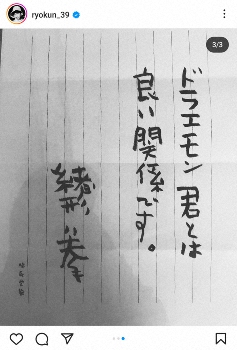 ryokun_39
3/3
ドラエモン君とは
良い関係です。
緒形小巻